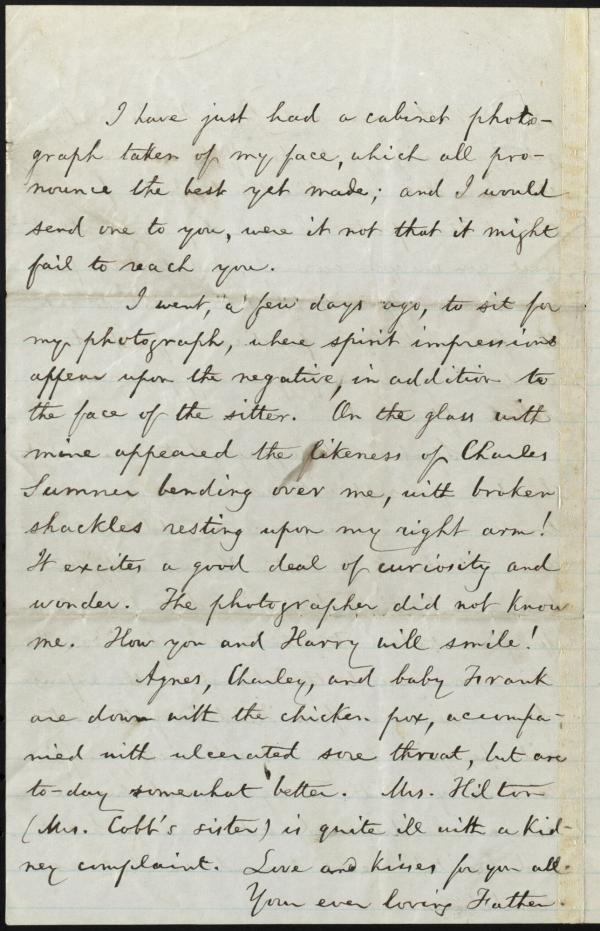 I have just had a cabinet photo-
graph taken of my face, which all pro-
nounce the best yet made; and I would
send one to you, were it not that it might
fail to reach you.
I went, a few days ago, to sit for
my photograph, where spirit impressions
appear upon the negative, in addition to
the face of the sitter. On the glass with
mine appeared the likeness of Charles
Sumner bending over me, with broken
shackles resting upon my right arm!
It excites a good deal of curiosity and
wonder. The photographer did not know
me. How you and Harry will smile!
Agnes, Charley, and baby Frank
are down with the chicken pox, accompa-
nied with ulcerated sore throat, but are
to-day somewhat better. Mrs. Hilton
(Mrs. Cobb's sister) is quite ill with a kid-
ney complaint. Love and kisses for you all.
Your ever loving Father.